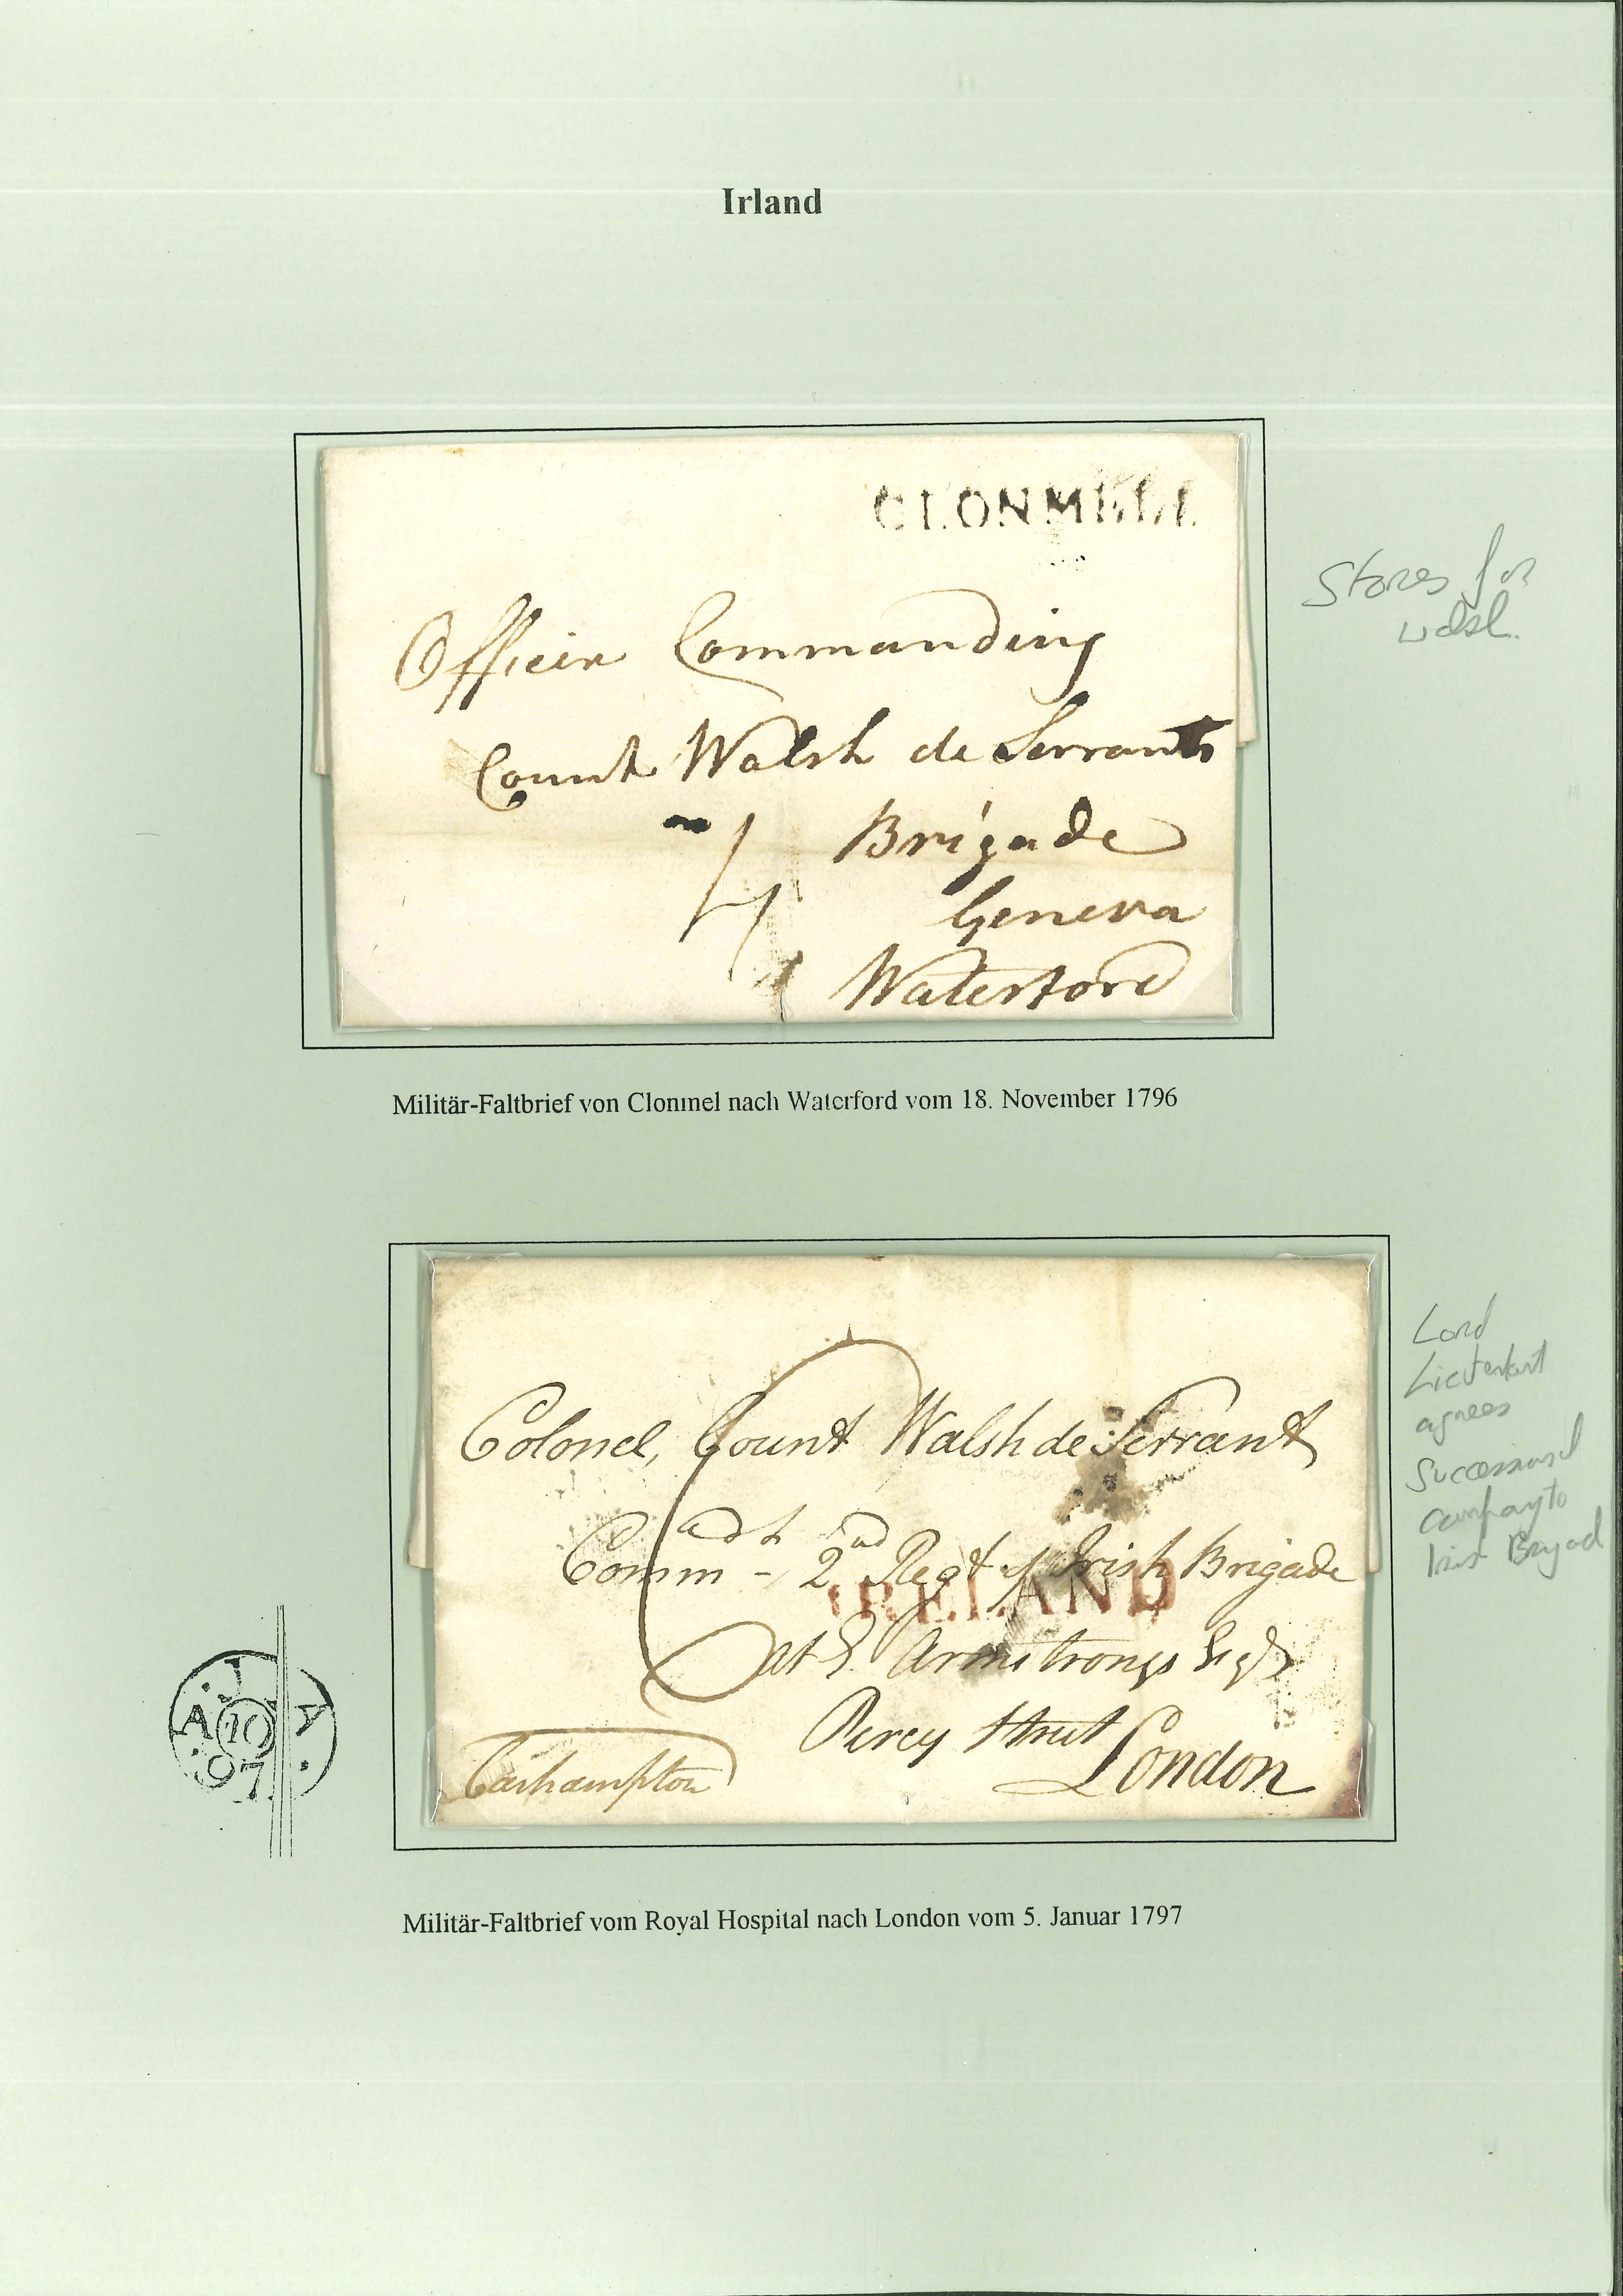 Irland
CLONMELL
Officer Commanding
Count Walsh de Serrants
Brigade
4
Geneva
Waterford
Stores for
Walsh
Militär-Faltbrief von Clonmel nach Waterford vom 18. November 1796
Colonel, Count Walsh de Serrant
Commandt 2nd Regt of Irish Brigade
IRELAND
at Armstrongs Esqr
Percy Street
London
Carhampton
JA
A 10 Y
97
Lord
Lieutenant
agrees
company to
Irish Brigad
Militär-Faltbrief vom Royal Hospital nach London vom 5. Januar 1797